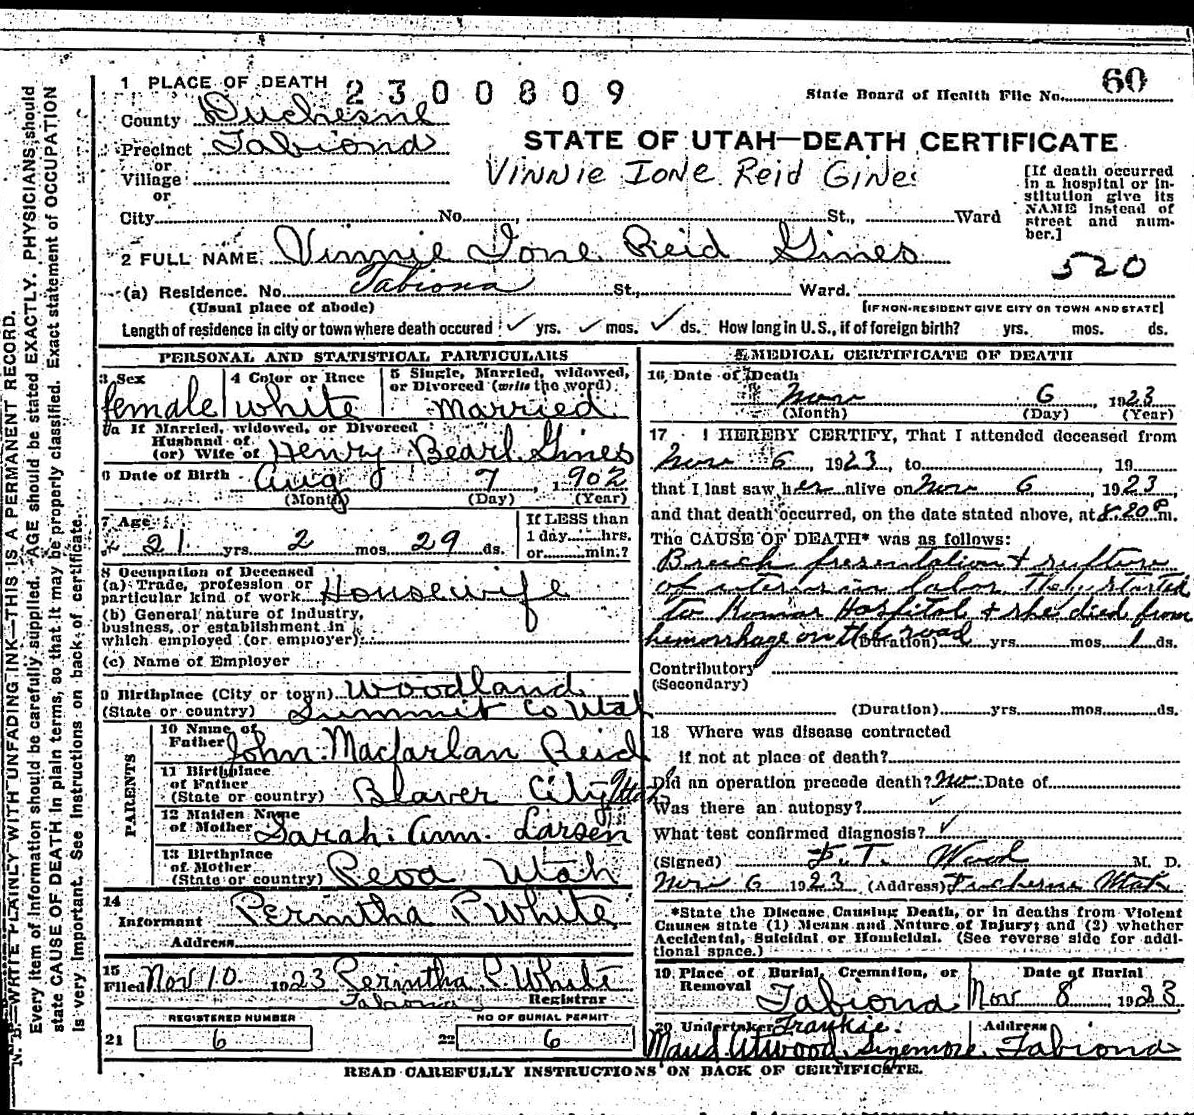 1 PLACE OF DEATH 2300809
State Board of Health File No. 60
County Duchesne
Precinct Tabiona
or
Village
or
STATE OF UTAH—DEATH CERTIFICATE
Vinnie Ione Reid Gines
[If death occurred in a hospital or institution give its NAME instead of street and number.]
City No. St., Ward
2 FULL NAME Vinnie Ione Reid Gines
520
(a) Residence. No. Tabiona St., Ward.
(Usual place of abode) [IF NON-RESIDENT GIVE CITY OR TOWN AND STATE]
Length of residence in city or town where death occured ✓ yrs. ✓ mos. ✓ ds. How long in U.S., if of foreign birth? yrs. mos. ds.
PERSONAL AND STATISTICAL PARTICULARS
3 Sex female
4 Color or Race white
5 Single, Married, widowed, or Divorced (write the word) Married
5a If Married, widowed, or Divorced
Husband of
(or) Wife of Henry Bearl Gines
6 Date of Birth Aug 7 1902
(Month) (Day) (Year)
7 Age 21 yrs. 2 mos. 29 ds.
If LESS than 1 day hrs. or min.?
8 Occupation of Deceased
(a) Trade, profession or particular kind of work Housewife
(b) General nature of industry, business, or establishment in which employed (or employer)
(c) Name of Employer
9 Birthplace (City or town) Woodland
(State or country) Summit Co Utah
PARENTS
10 Name of Father John Macfarlan Reid
11 Birthplace of Father (State or country) Blaver City Utah
12 Maiden Name of Mother Sarah Ann Larsen
13 Birthplace of Mother (State or country) Peoa Utah
14 Informant Permitha P White
Address
15 Filed Nov 10 1923 Permitha P. White
Tabiona Registrar
REGISTERED NUMBER
21 6
NO OF BURIAL PERMIT
22 6
MEDICAL CERTIFICATE OF DEATH
16 Date of Death
Nov 6 1923
(Month) (Day) (Year)
17 I HEREBY CERTIFY, That I attended deceased from
Nov 6 1923, to , 19
that I last saw her alive on Nov 6, 1923,
and that death occurred, on the date stated above, at 8.20 P m.
The CAUSE OF DEATH* was as follows:
Breech presentation & rupture
of uterus in labor. They started
to Komas Hospital & she died from
hemorrhage on the road (Duration) yrs. mos. 1 ds.
Contributory
(Secondary)
(Duration) yrs. mos. ds.
18 Where was disease contracted
if not at place of death?
Did an operation precede death? No Date of
Was there an autopsy? ✓
What test confirmed diagnosis? ✓
(Signed) Wood M. D.
Nov 6 1923 (Address) Duchesne Utah
*State the Disease Causing Death, or in deaths from Violent Causes state (1) Means and Nature of Injury; and (2) whether Accidental, Suicidal or Homicidal. (See reverse side for additional space.)
19 Place of Burial, Cremation, or Removal Tabiona
Date of Burial Nov 8 1923
20 Undertaker Frankie
Maud Atwood, Sizemore
Address Tabiona
READ CAREFULLY INSTRUCTIONS ON BACK OF CERTIFICATE.
N. B.—WRITE PLAINLY WITH UNFADING INK—THIS IS A PERMANENT RECORD.
Every item of information should be carefully supplied. AGE should be stated EXACTLY. PHYSICIANS should
state CAUSE OF DEATH in plain terms, so that it may be properly classified. Exact statement of OCCUPATION
is very important. See instructions on back of certificate.